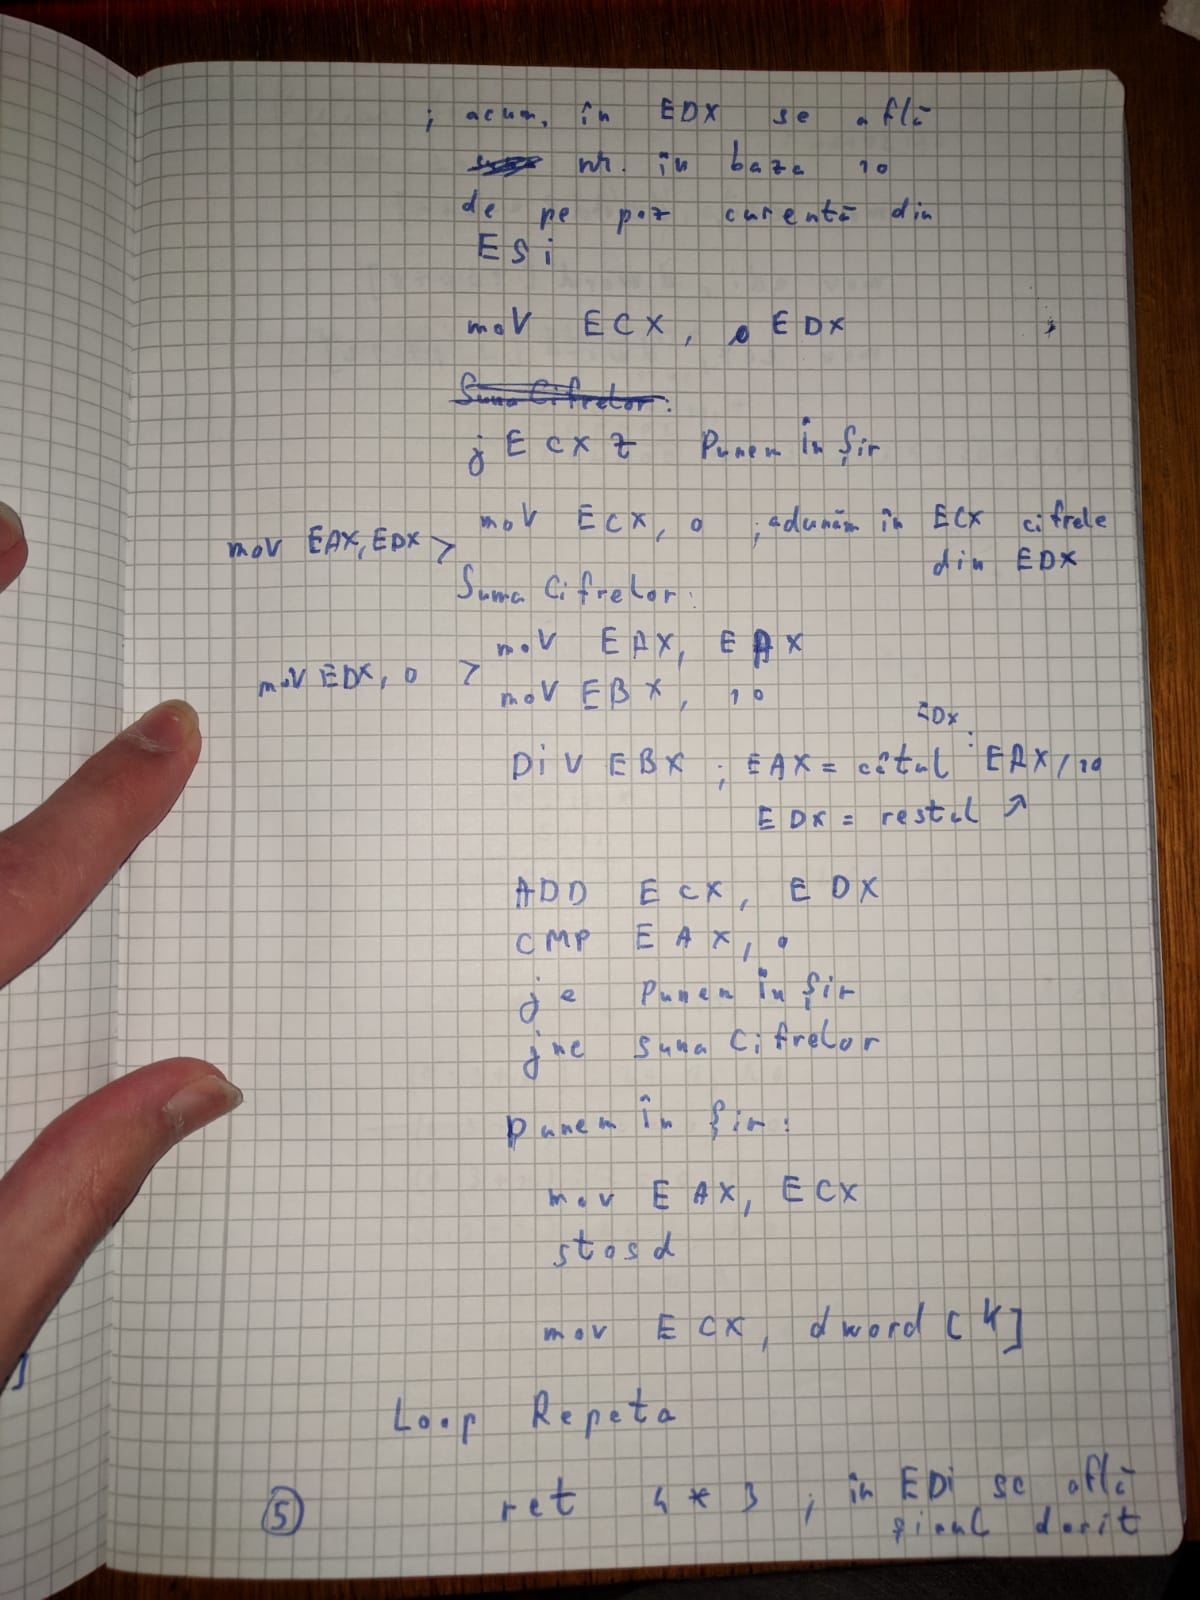 ; acum, în EDX se află
nr. în baza 10
de pe poz curentă din
ESi
mov ECX, EDX
Suma Cifrelor:
jECXZ Punem În Șir
mov ECX, 0 ; adunăm în ECX cifrele
din EDX
mov EAX, EDX >
Suma Cifrelor:
mov EAX, EAX
mov EDX, 0 >
mov EBX, 10
EDX
DiV EBX ; EAX = câtul : EAX/10
EDX = restul ↗
ADD ECX, EDX
CMP EAX, 0
je Punem În Șir
jne Suma Cifrelor
Punem În Șir:
mov EAX, ECX
stosd
mov ECX, dword [k]
Loop Repeta
5 ret 4*3 ; în EDi se află
șirul dorit
]